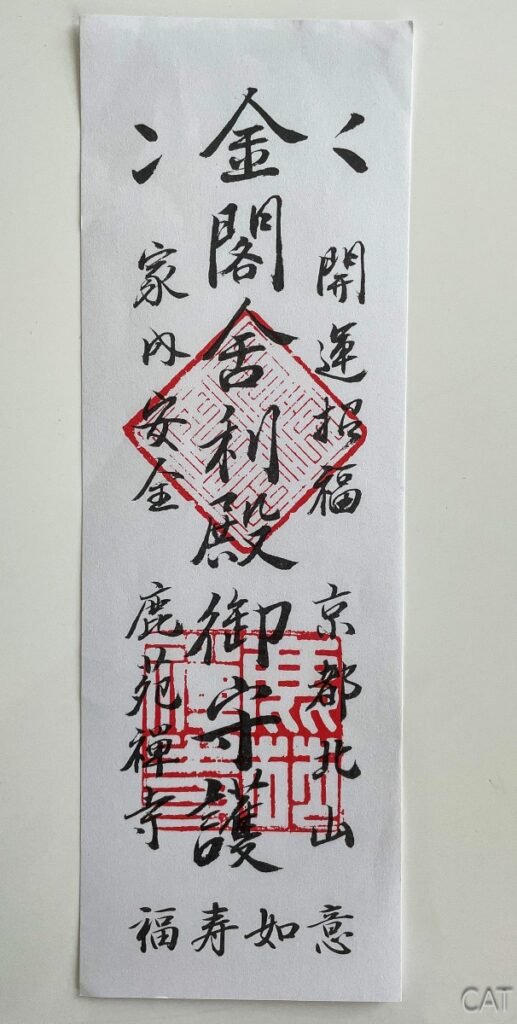 開運招福 京都北山
金閣舎利殿御守護
家内安全 鹿苑禅寺
福寿如意
CAT